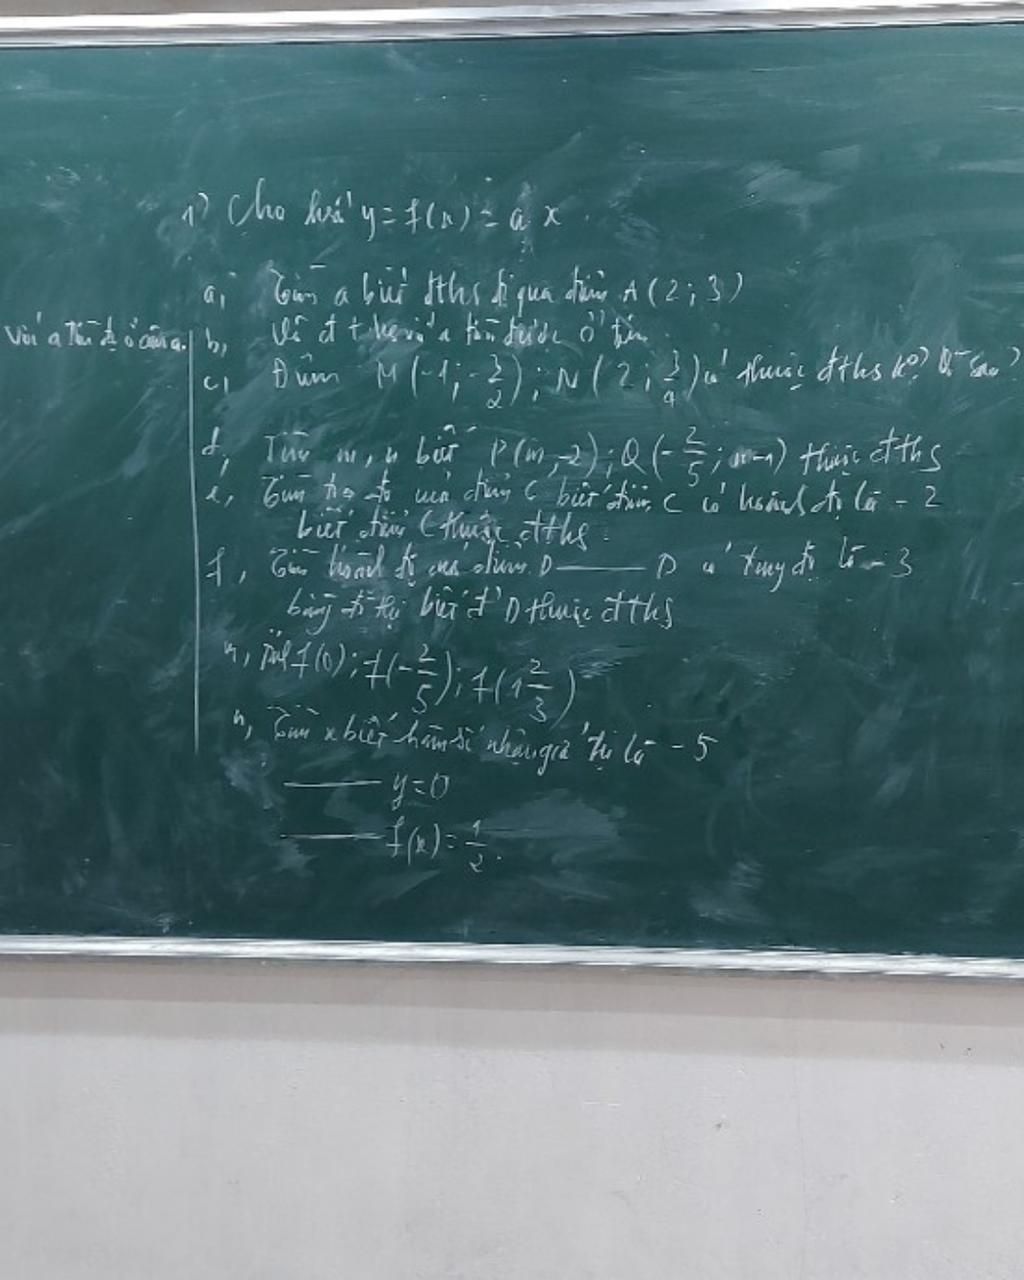 1) Cho hsố y = f(x) = a x
a, Tìm a biết đths đi qua điểm A (2 ; 3)
Với a tìm đc ở câu a.
b, Vẽ đths với a tìm được ở trên
c, Điểm M (-1 ; -3/2) ; N (2 ; 3/4) có thuộc đths ko? Vì sao?
d, Tìm m, n biết P(m, -2) ; Q (-2/5 ; n-1) thuộc đths
e, Tìm toạ độ của điểm C biết điểm C có hoành độ là -2
biết điểm C thuộc đths.
f, Tìm hoành độ của điểm D —— D có tung độ là -3
bằng đồ thị biết đ' D thuộc đths
f(0) ; f(-2/5) ; f(1 2/3)
h, Tìm x biết hàm số nhận giá trị là -5
—— y = 0
—— f(x) = 1/2.